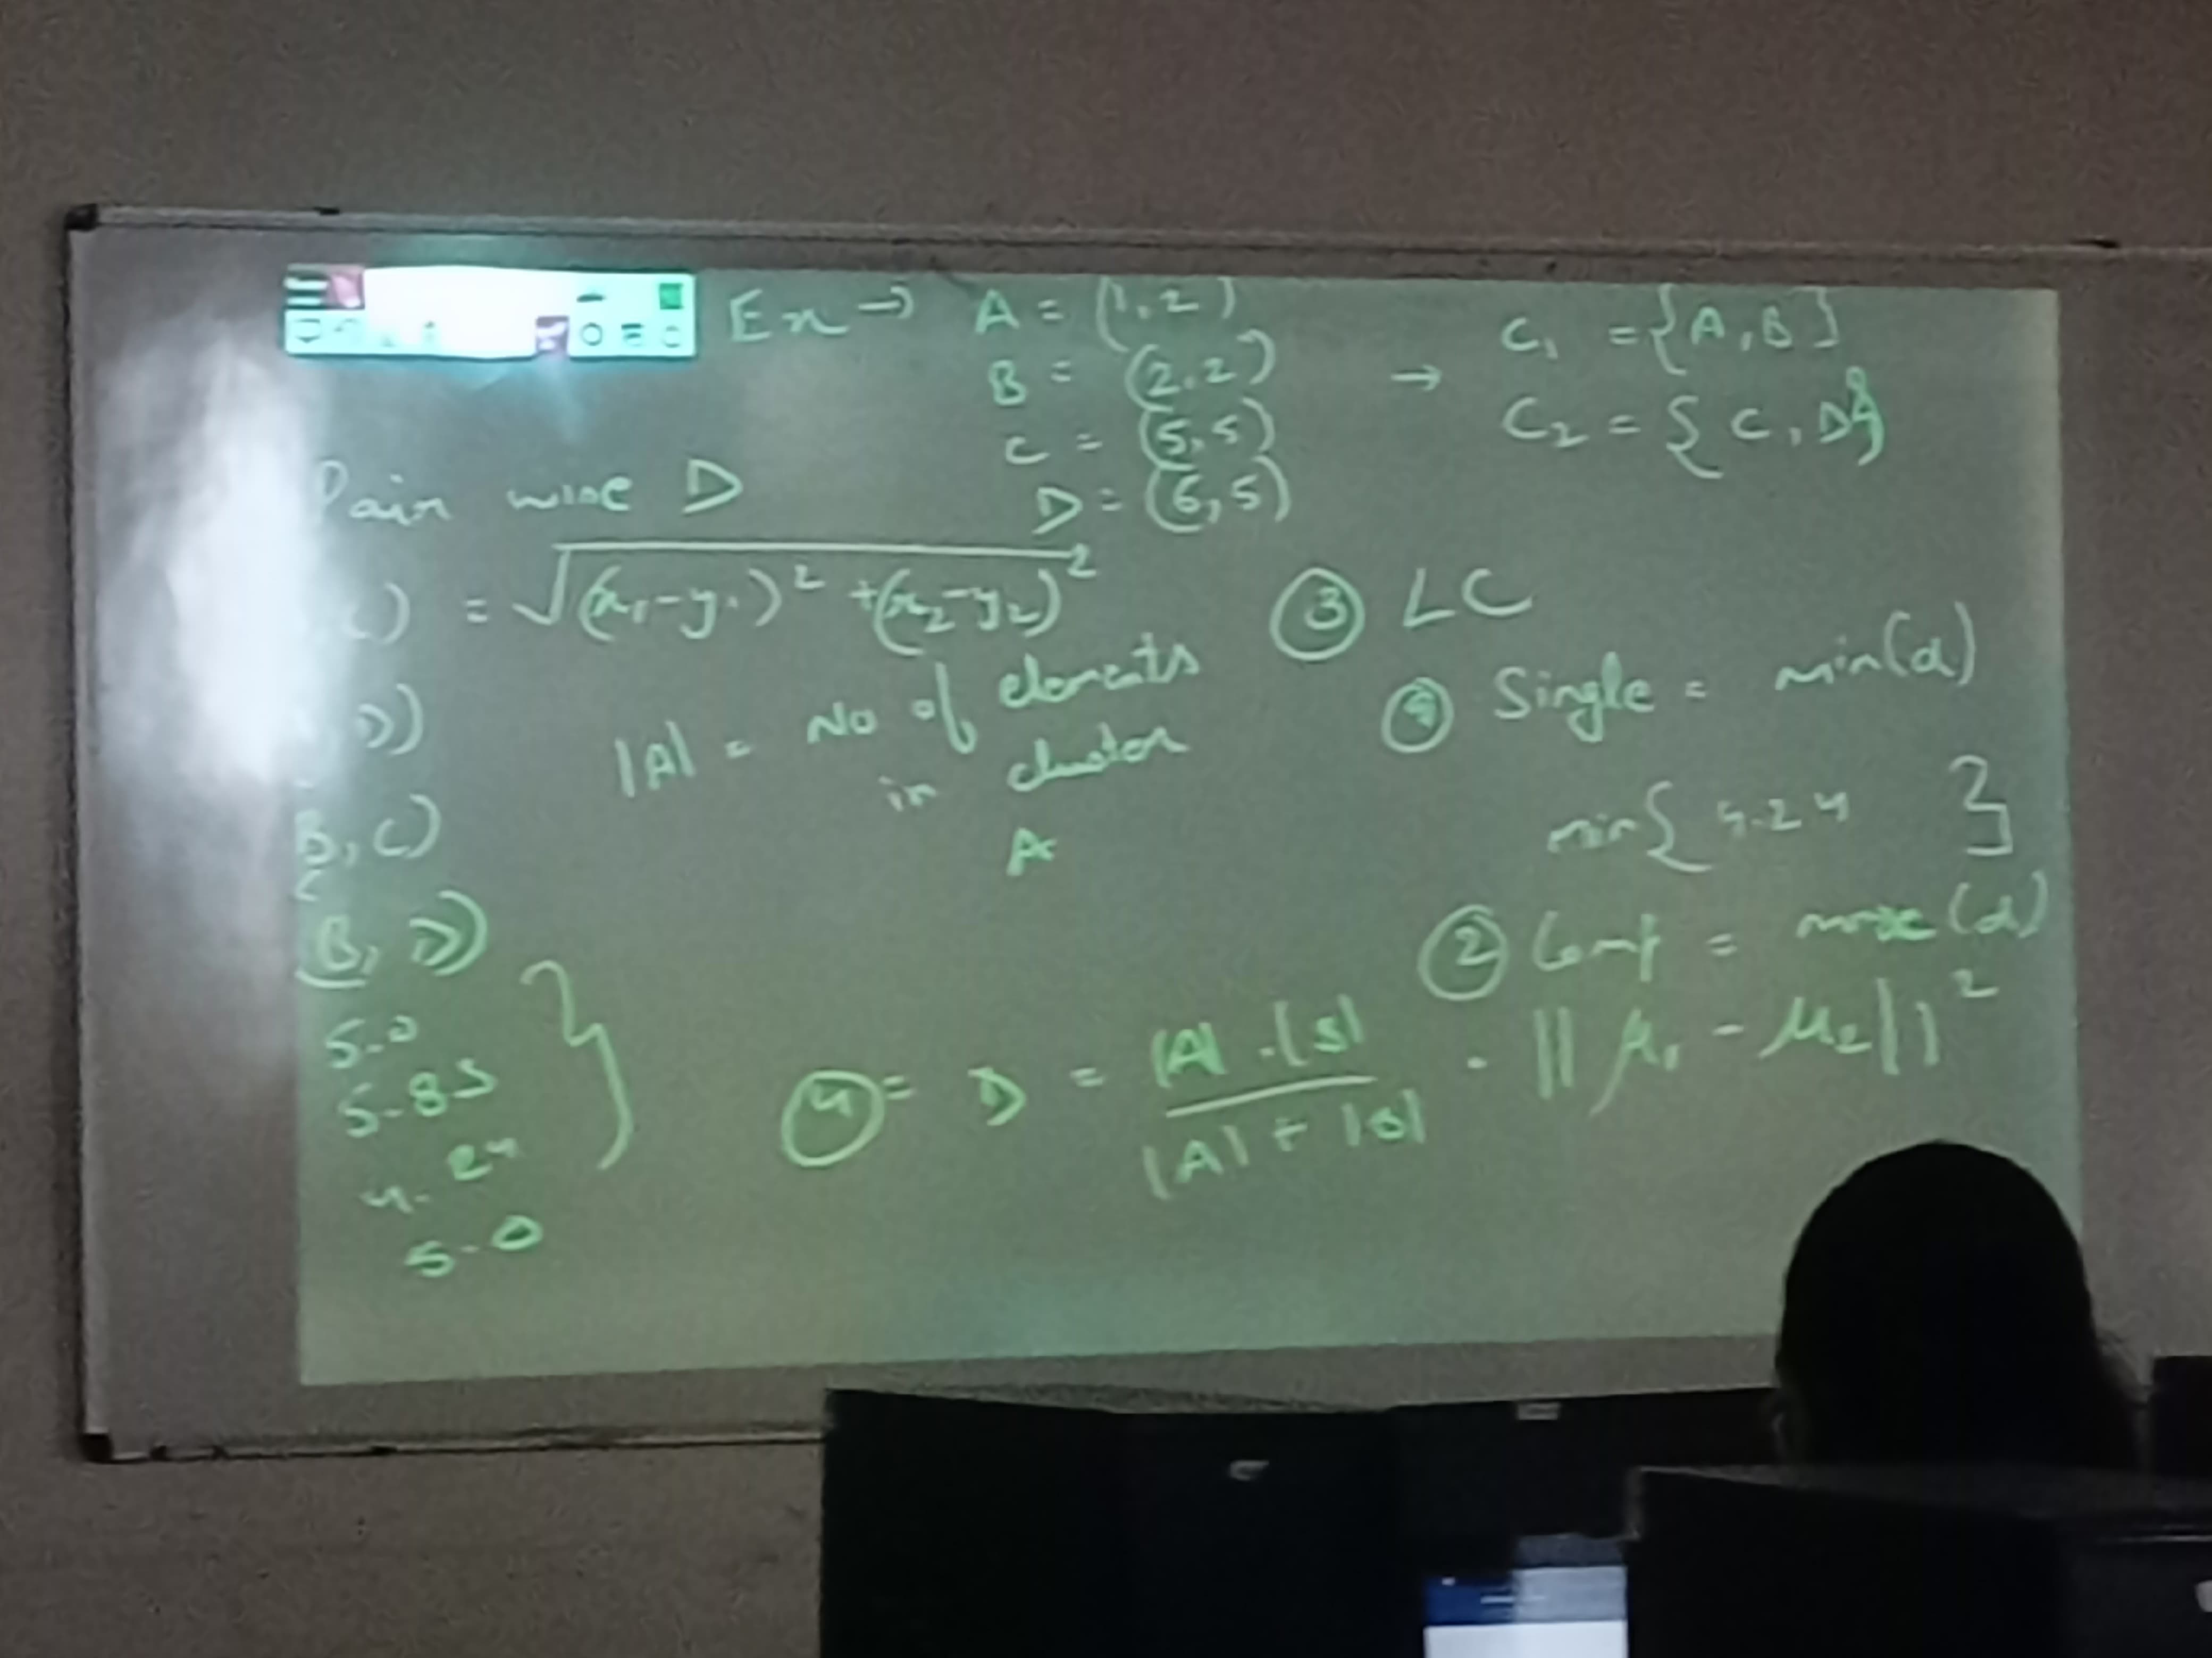 Ex → A = (1,2)
B = (2,2)
C = (5,5)
D = (6,5)
→ C₁ = {A,B}
C₂ = {C,D}
Pair wise D
C) = √(x₁-y₁)² + (x₂-y₂)²
D)
B, C)
(B, D)
5.0
5.83
4.24
5.0
|A| = No of elements
in cluster
A
③ LC
Single = min(d)
min{ 4.24 }
② Comp = max(d)
④ = D = |A| . |B| / |A| + |B| . ||μ₁ - μ₂||²